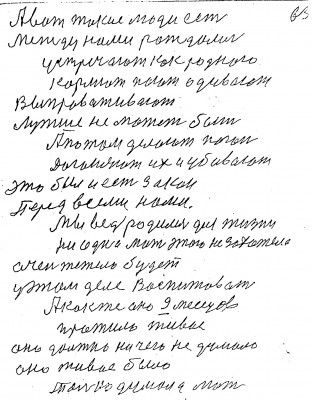 63
А вот такое люди ест
Между нами рождалис
устречают как родного
кормют поют одевают
Выпроваживают
лутше не может быть
А потом делают погон
догоняют их и убивают
это был и ест закон
Перед всеми нами.
Мы вед родилис для жизни
ни одна мат этого не захотела
очен тежело будет
у этом деле воспитоват
А как же оно 9 месецов
прожило живое
оно должно ничего не думало
оно живое было
только думала мат